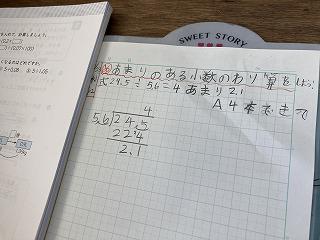 SWEET STORY
あまりのある小数のわり算をしよう
式 24.5÷5.6=4あまり2.1
A 4本できて
4
5.6)24.5
22.4
2.1